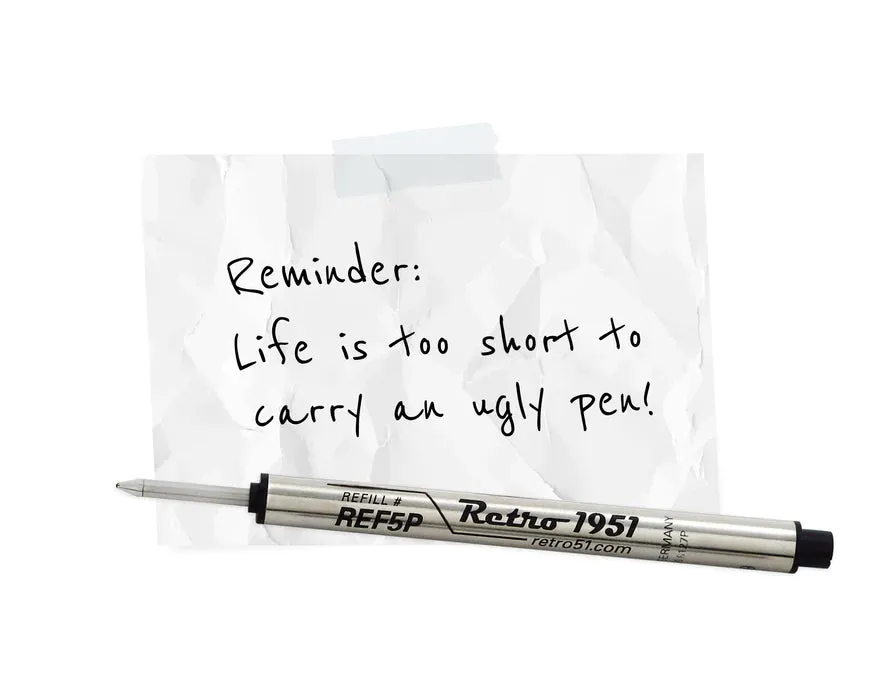 Reminder:
Life is too short to
carry an ugly pen!
REFILL #
REF5P
Retro 1951
retro51.com